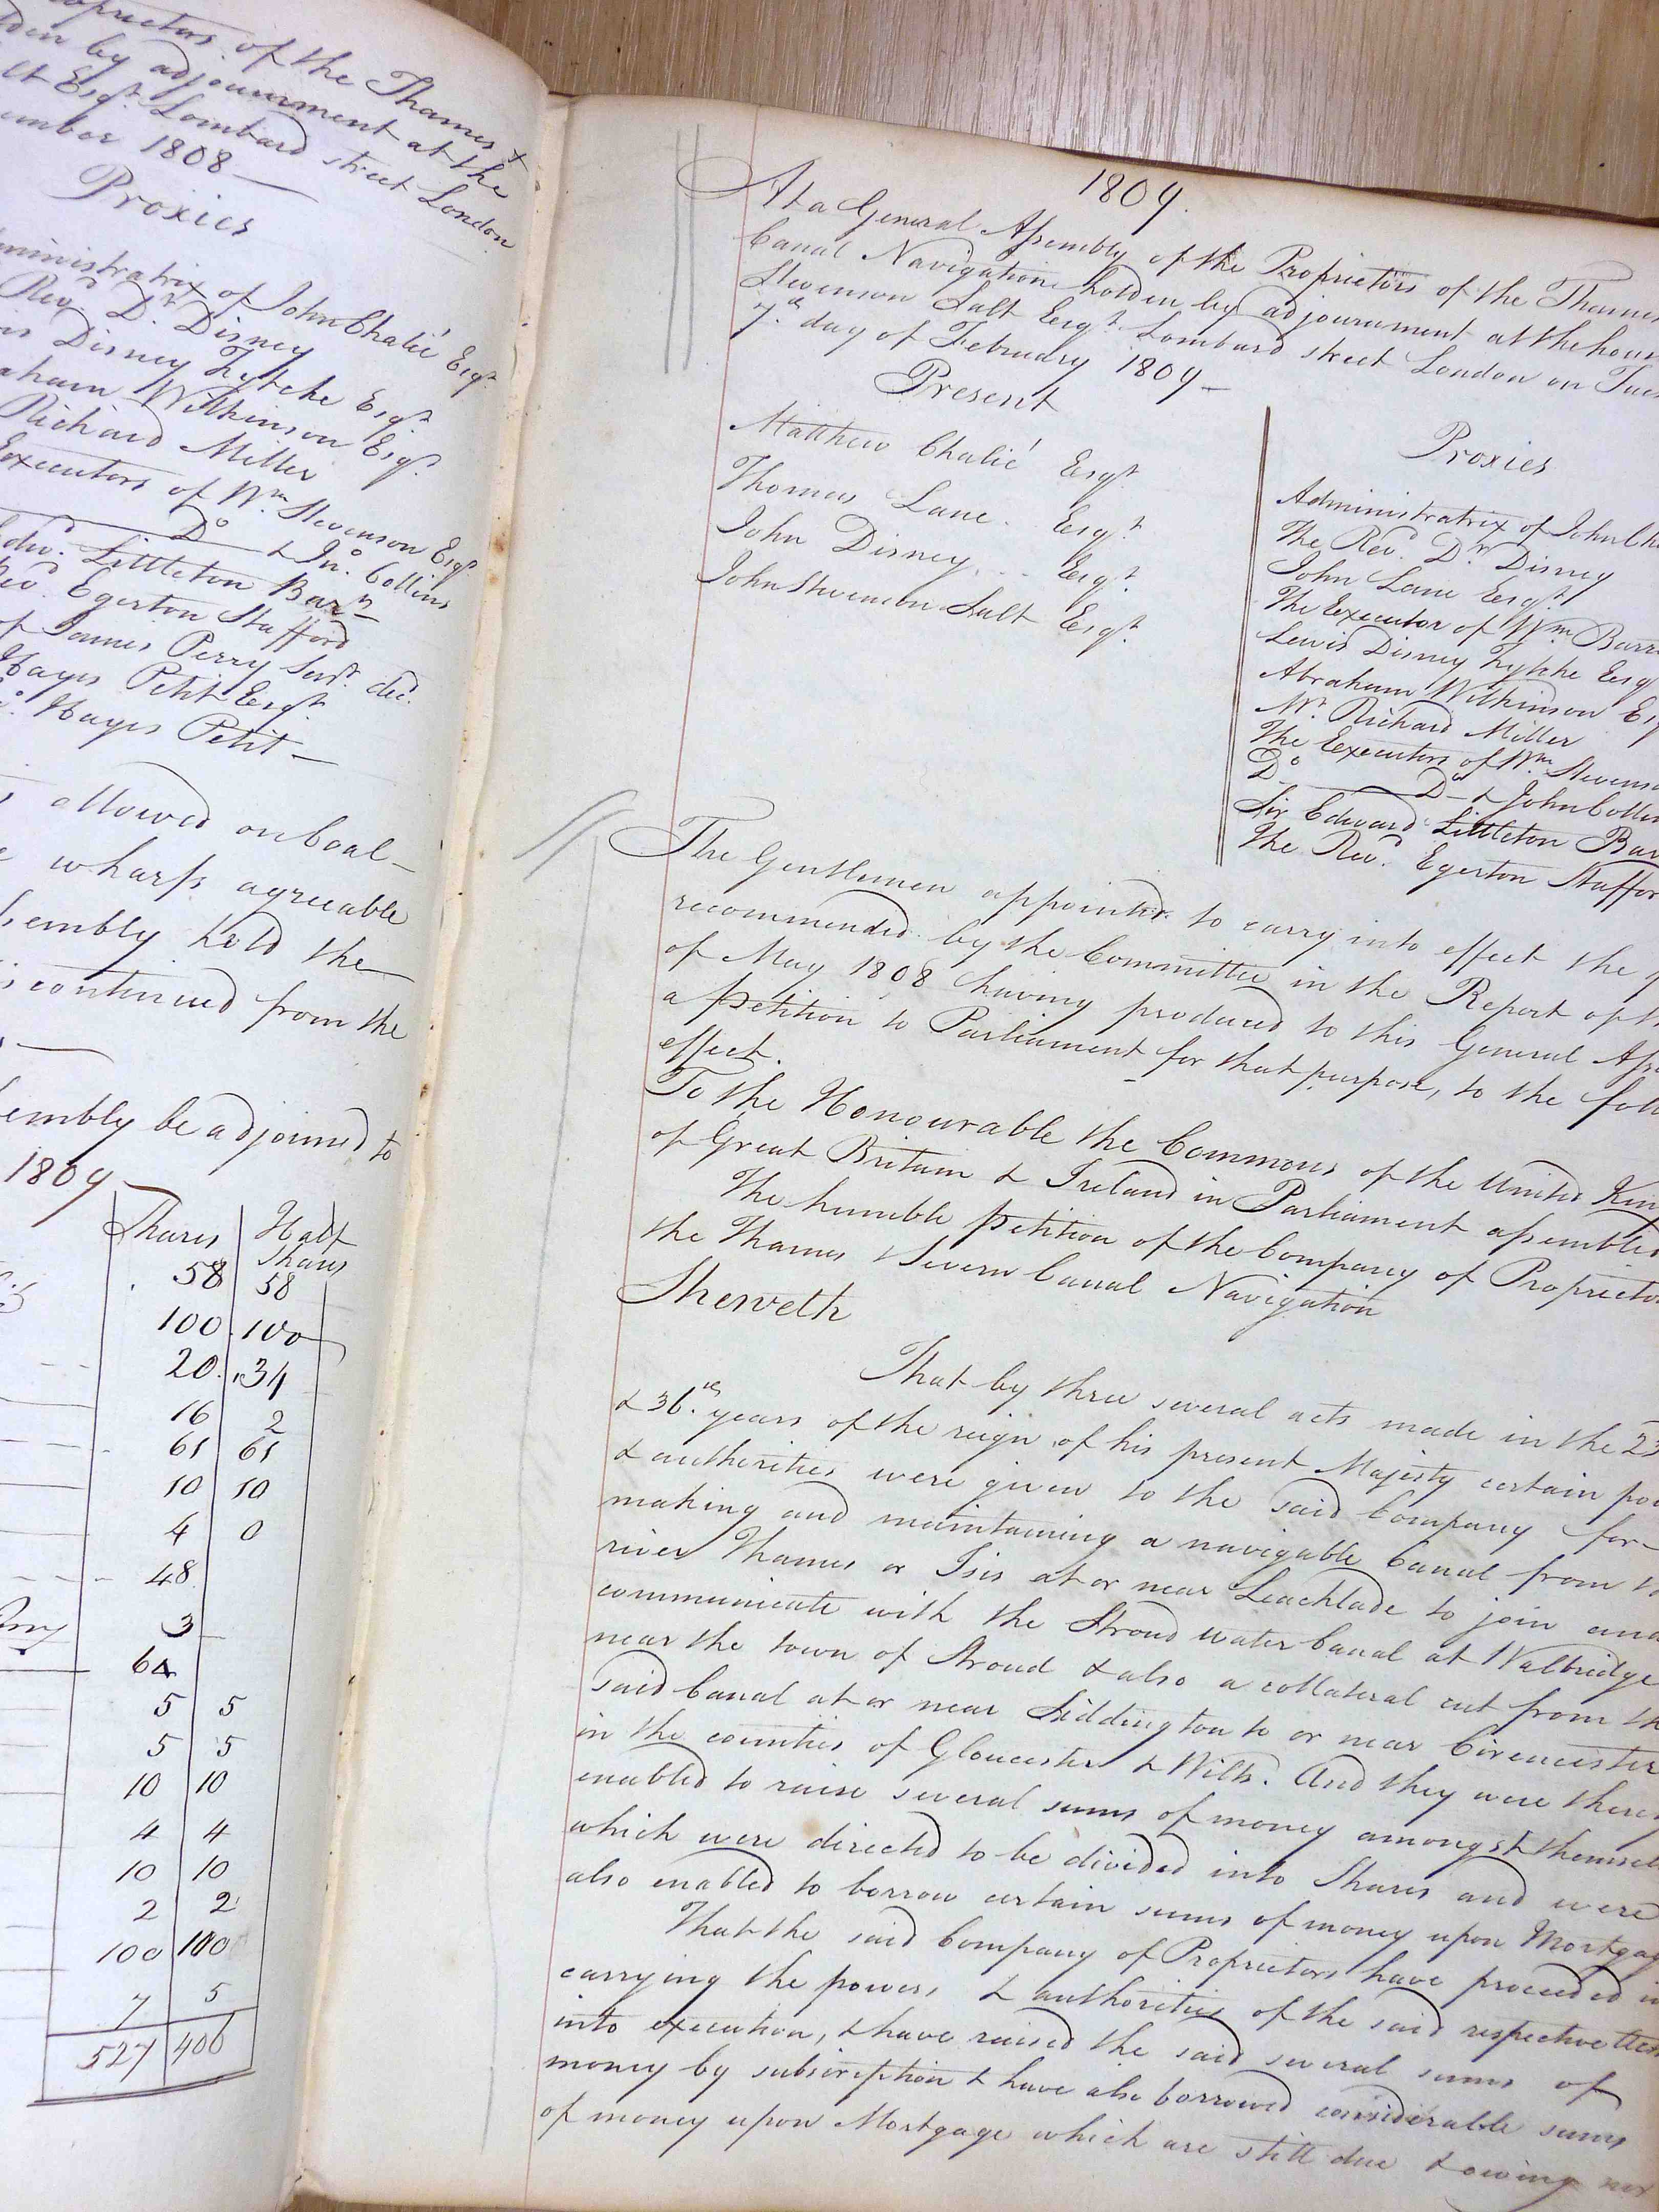 oprietors of the Thames &
den by adjournment at the
lt Esqr. Lombard street London
ember 1808 —
Proxies
ministratrix of John Chalié Esqr.
Revd. Dr. Disney
is Disney Fytche Esqr.
aham Wilkinson Esqr.
Richard Miller
Executors of Wm. Stevenson Esqr.
Do. & Jno. Collins
Edwd. Littleton Bart.
Revd. Egerton Stafford
of James Perry Senr. decd.
Hayes Petit Esqr.
Hayes Petit —
allowed on Coal —
wharfs agreeable
sembly held the
is continued from the
sembly be adjourned to
1809 —
Shares | Half Shares
58 | 58
100 | 100
20 | 34
16 | 2
61 | 61
10 | 10
4 | 0
48
3
64
5 | 5
5 | 5
10 | 10
4 | 4
10 | 10
2 | 2
100 | 100
7 | 5
527 | 406
1809.
At a General Assembly of the Proprietors of the Thames
Canal Navigation holden by adjournment at the hous
Stevenson Salt Esqr. Lombard street London on Tues
7th. day of February 1809 —
Present
Matthew Chalié Esqr.
Thomas Lane Esqr.
John Disney Esqr.
John Stevenson Salt Esqr.
Proxies
Administratrix of John Cha
The Revd. Dr. Disney
John Lane Esqr.
The Executor of Wm. Barr
Lewis Disney Fytche Esqr
Abraham Wilkinson Esq
Mr. Richard Miller
The Executors of Wm. Stevens
Do. — Do. & John Collin
Sir Edward Littleton Bar
The Revd. Egerton Staffor
The Gentlemen appointed to carry into effect the
recommended by the Committee in the Report of th
of May 1808 having produced to this General Ass
a petition to Parliament for that purpose, to the foll
effect.
To the Honourable the Commons of the United King
of Great Britain & Ireland in Parliament assembled
The humble petition of the Company of Proprietor
the Thames & Severn Canal Navigation
Sheweth
That by three several acts made in the 23
& 36th. years of the reign of his present Majesty certain pow
& authorities were given to the said Company for
making and maintaining a navigable Canal from th
river Thames or Isis at or near Leachlade to join and
communicate with the Stroud water Canal at Walbridge
near the town of Stroud & also a collateral cut from th
said Canal at or near Siddington to or near Cirencester
in the counties of Gloucester & Wilts. And they were there
enabled to raise several sums of money amongst themsel
which were directed to be divided into Shares and were
also enabled to borrow certain sums of money upon Mortgag
That the said Company of Proprietors have proceeded in
carrying the powers & authorities of the said respective Acts
into execution, & have raised the said several sums of
money by subscription & have also borrowed considerable sums
of money upon Mortgage which are still due & owing